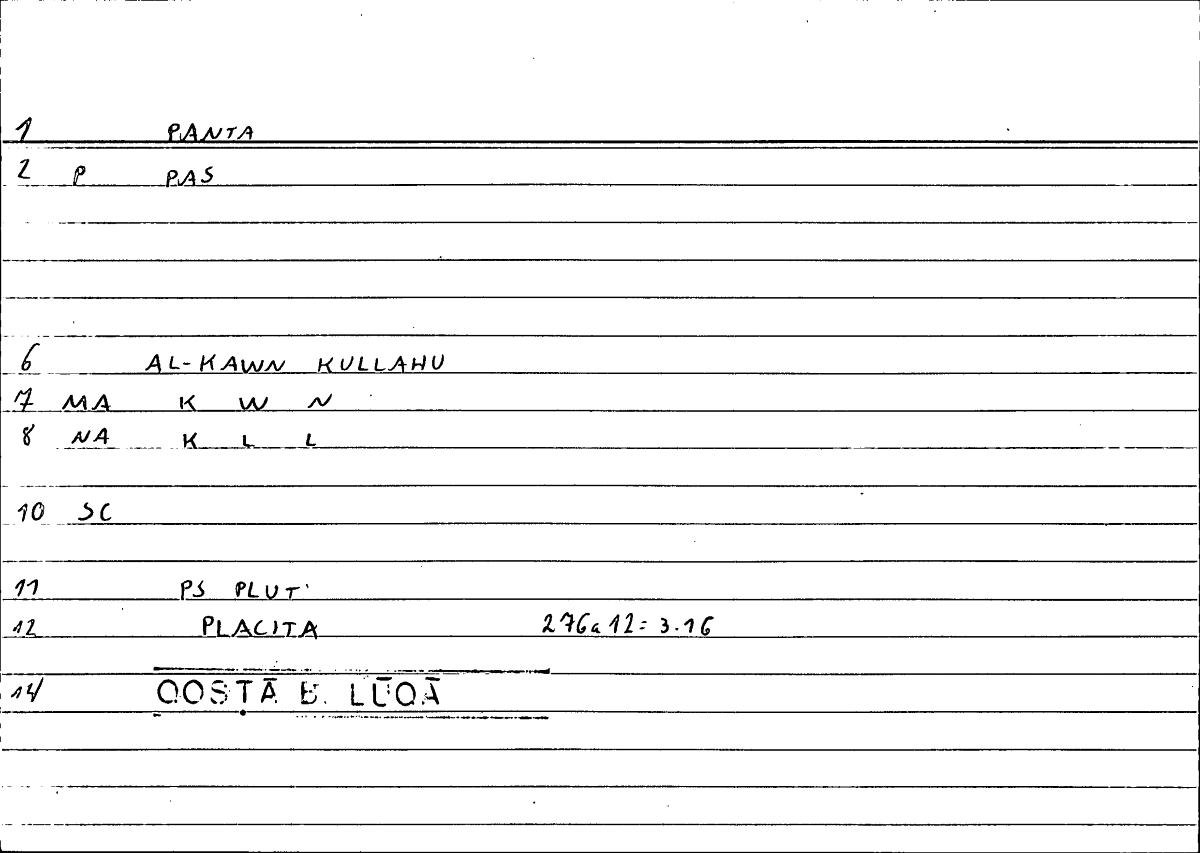 1 PANTA
2 P PAS
6 AL-KAWN KULLAHU
7 MA K W N
8 NA K L L
10 SC
11 PS PLUT.
12 PLACITA 276a12 = 3.16
14 QOSṬĀ B. LŪQĀ